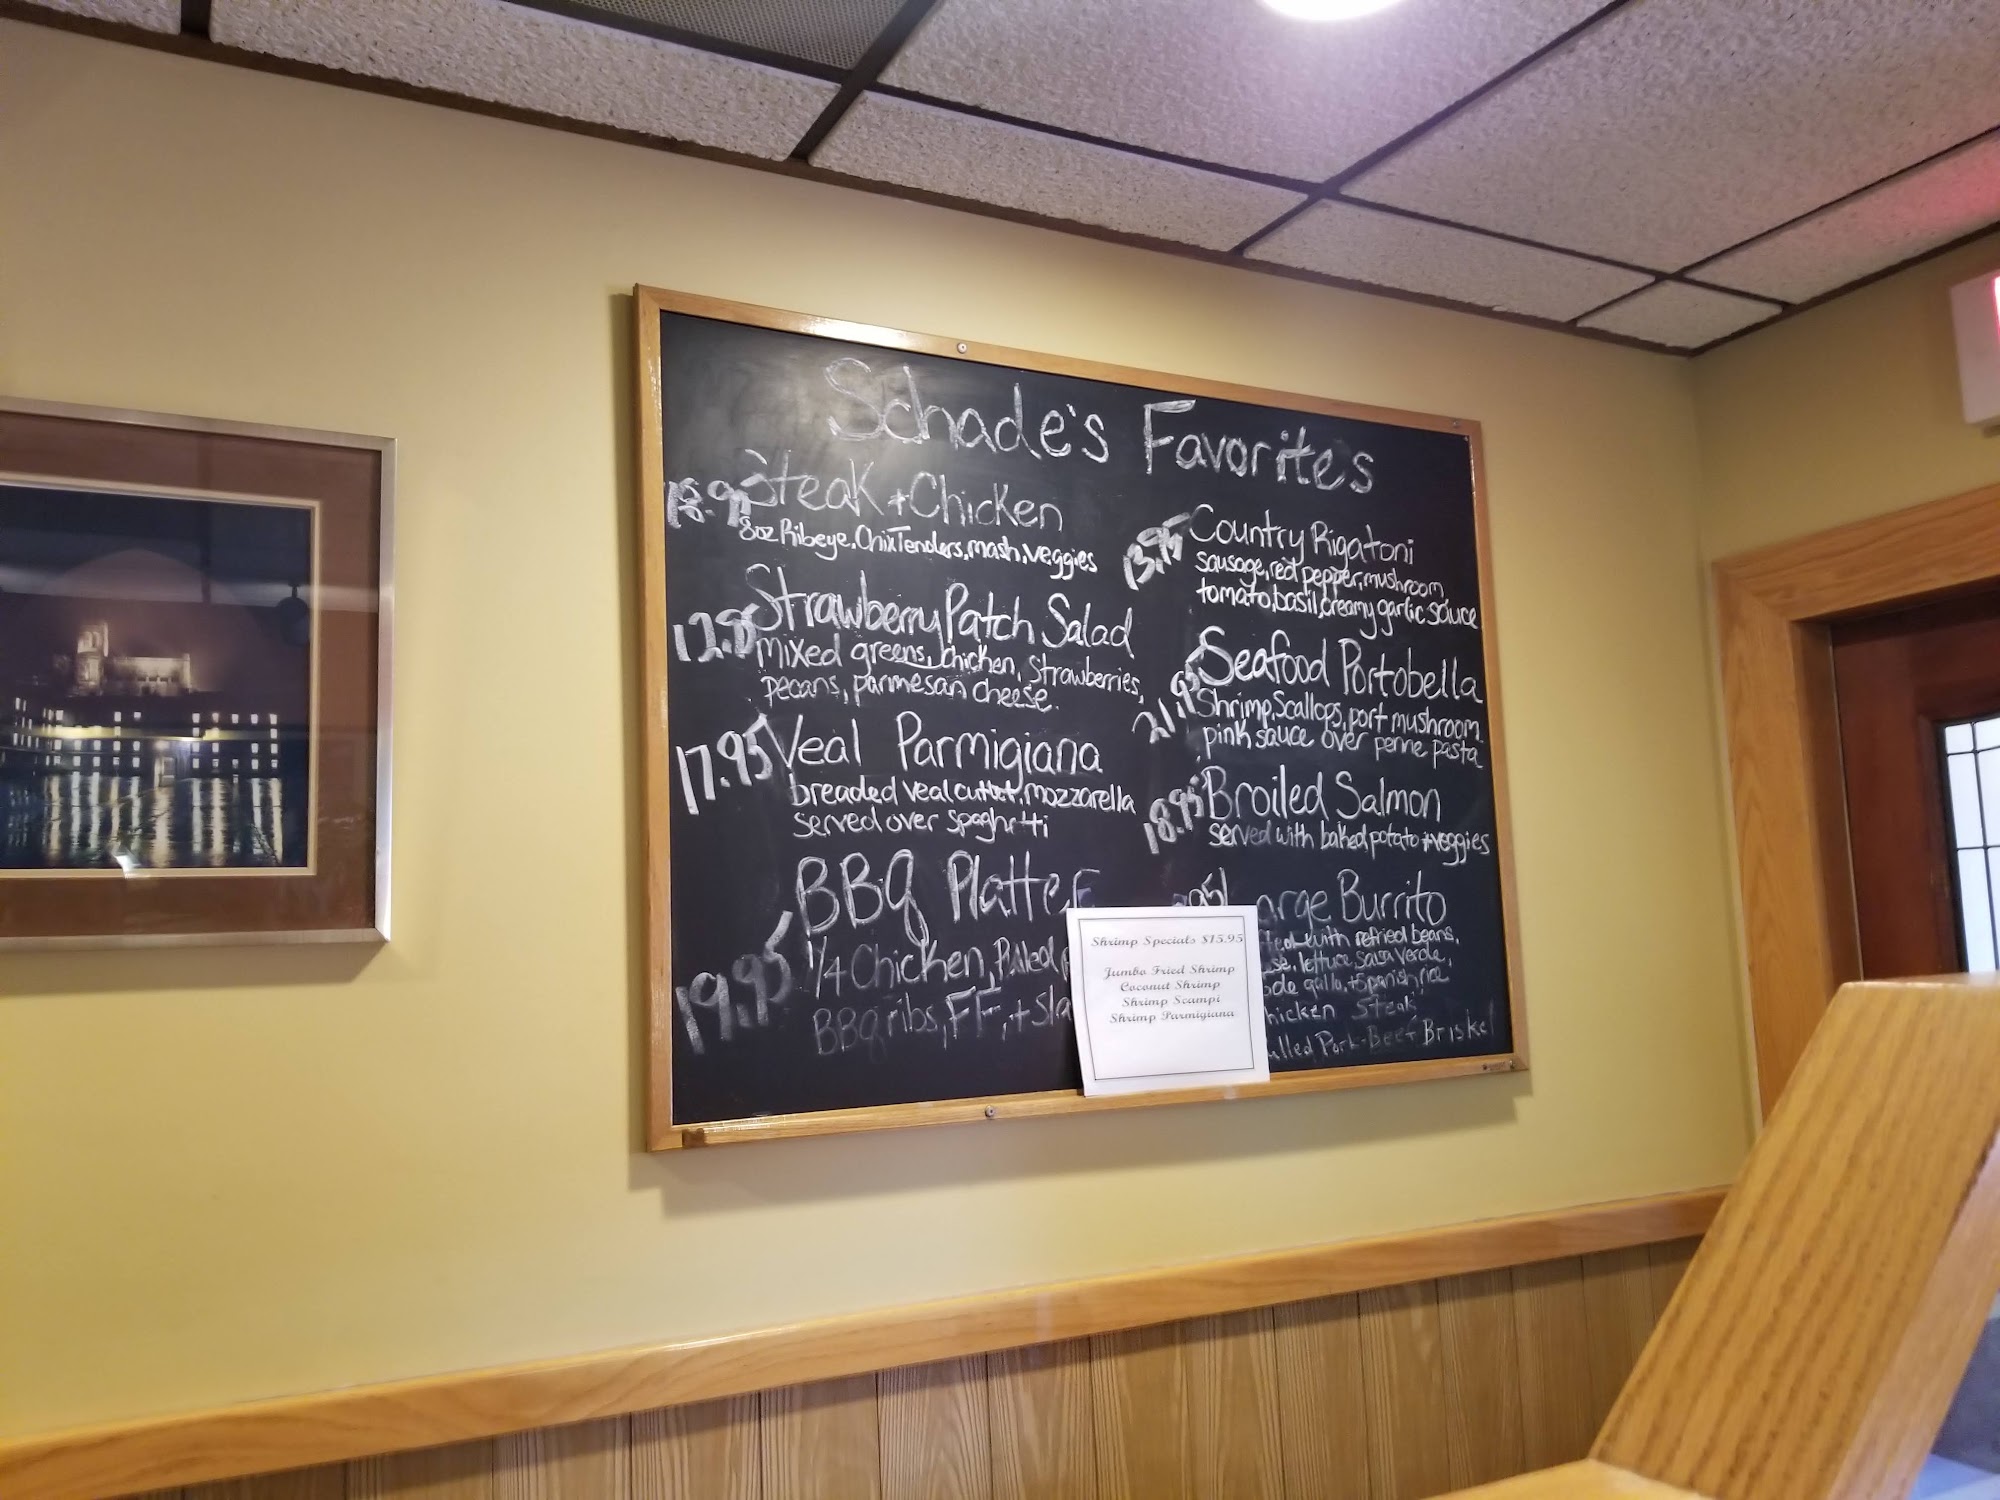 Schade's Favorites
18.95 Steak + Chicken
8oz Ribeye, ChixTenders, mash, veggies
12.95 Strawberry Patch Salad
mixed greens, chicken, strawberries,
pecans, parmesan cheese.
17.95 Veal Parmigiana
breaded veal cutlet, mozzarella
served over spaghetti
BBQ Platter
19.95 1/4 Chicken, Pulled
BBQ ribs, FF, +
13.95 Country Rigatoni
sausage, red pepper, mushroom,
tomato, basil, creamy garlic sauce
21.95 Seafood Portobella
Shrimp, Scallops, port mushroom
pink sauce over penne pasta
18.95 Broiled Salmon
served with baked potato + veggies
Burrito
with refried beans,
lettuce salsa verde,
gallo, + Spanish rice
Steak
Pork - Beef Brisket
Shrimp Specials $15.95
Jumbo Fried Shrimp
Coconut Shrimp
Shrimp Scampi
Shrimp Parmigiana